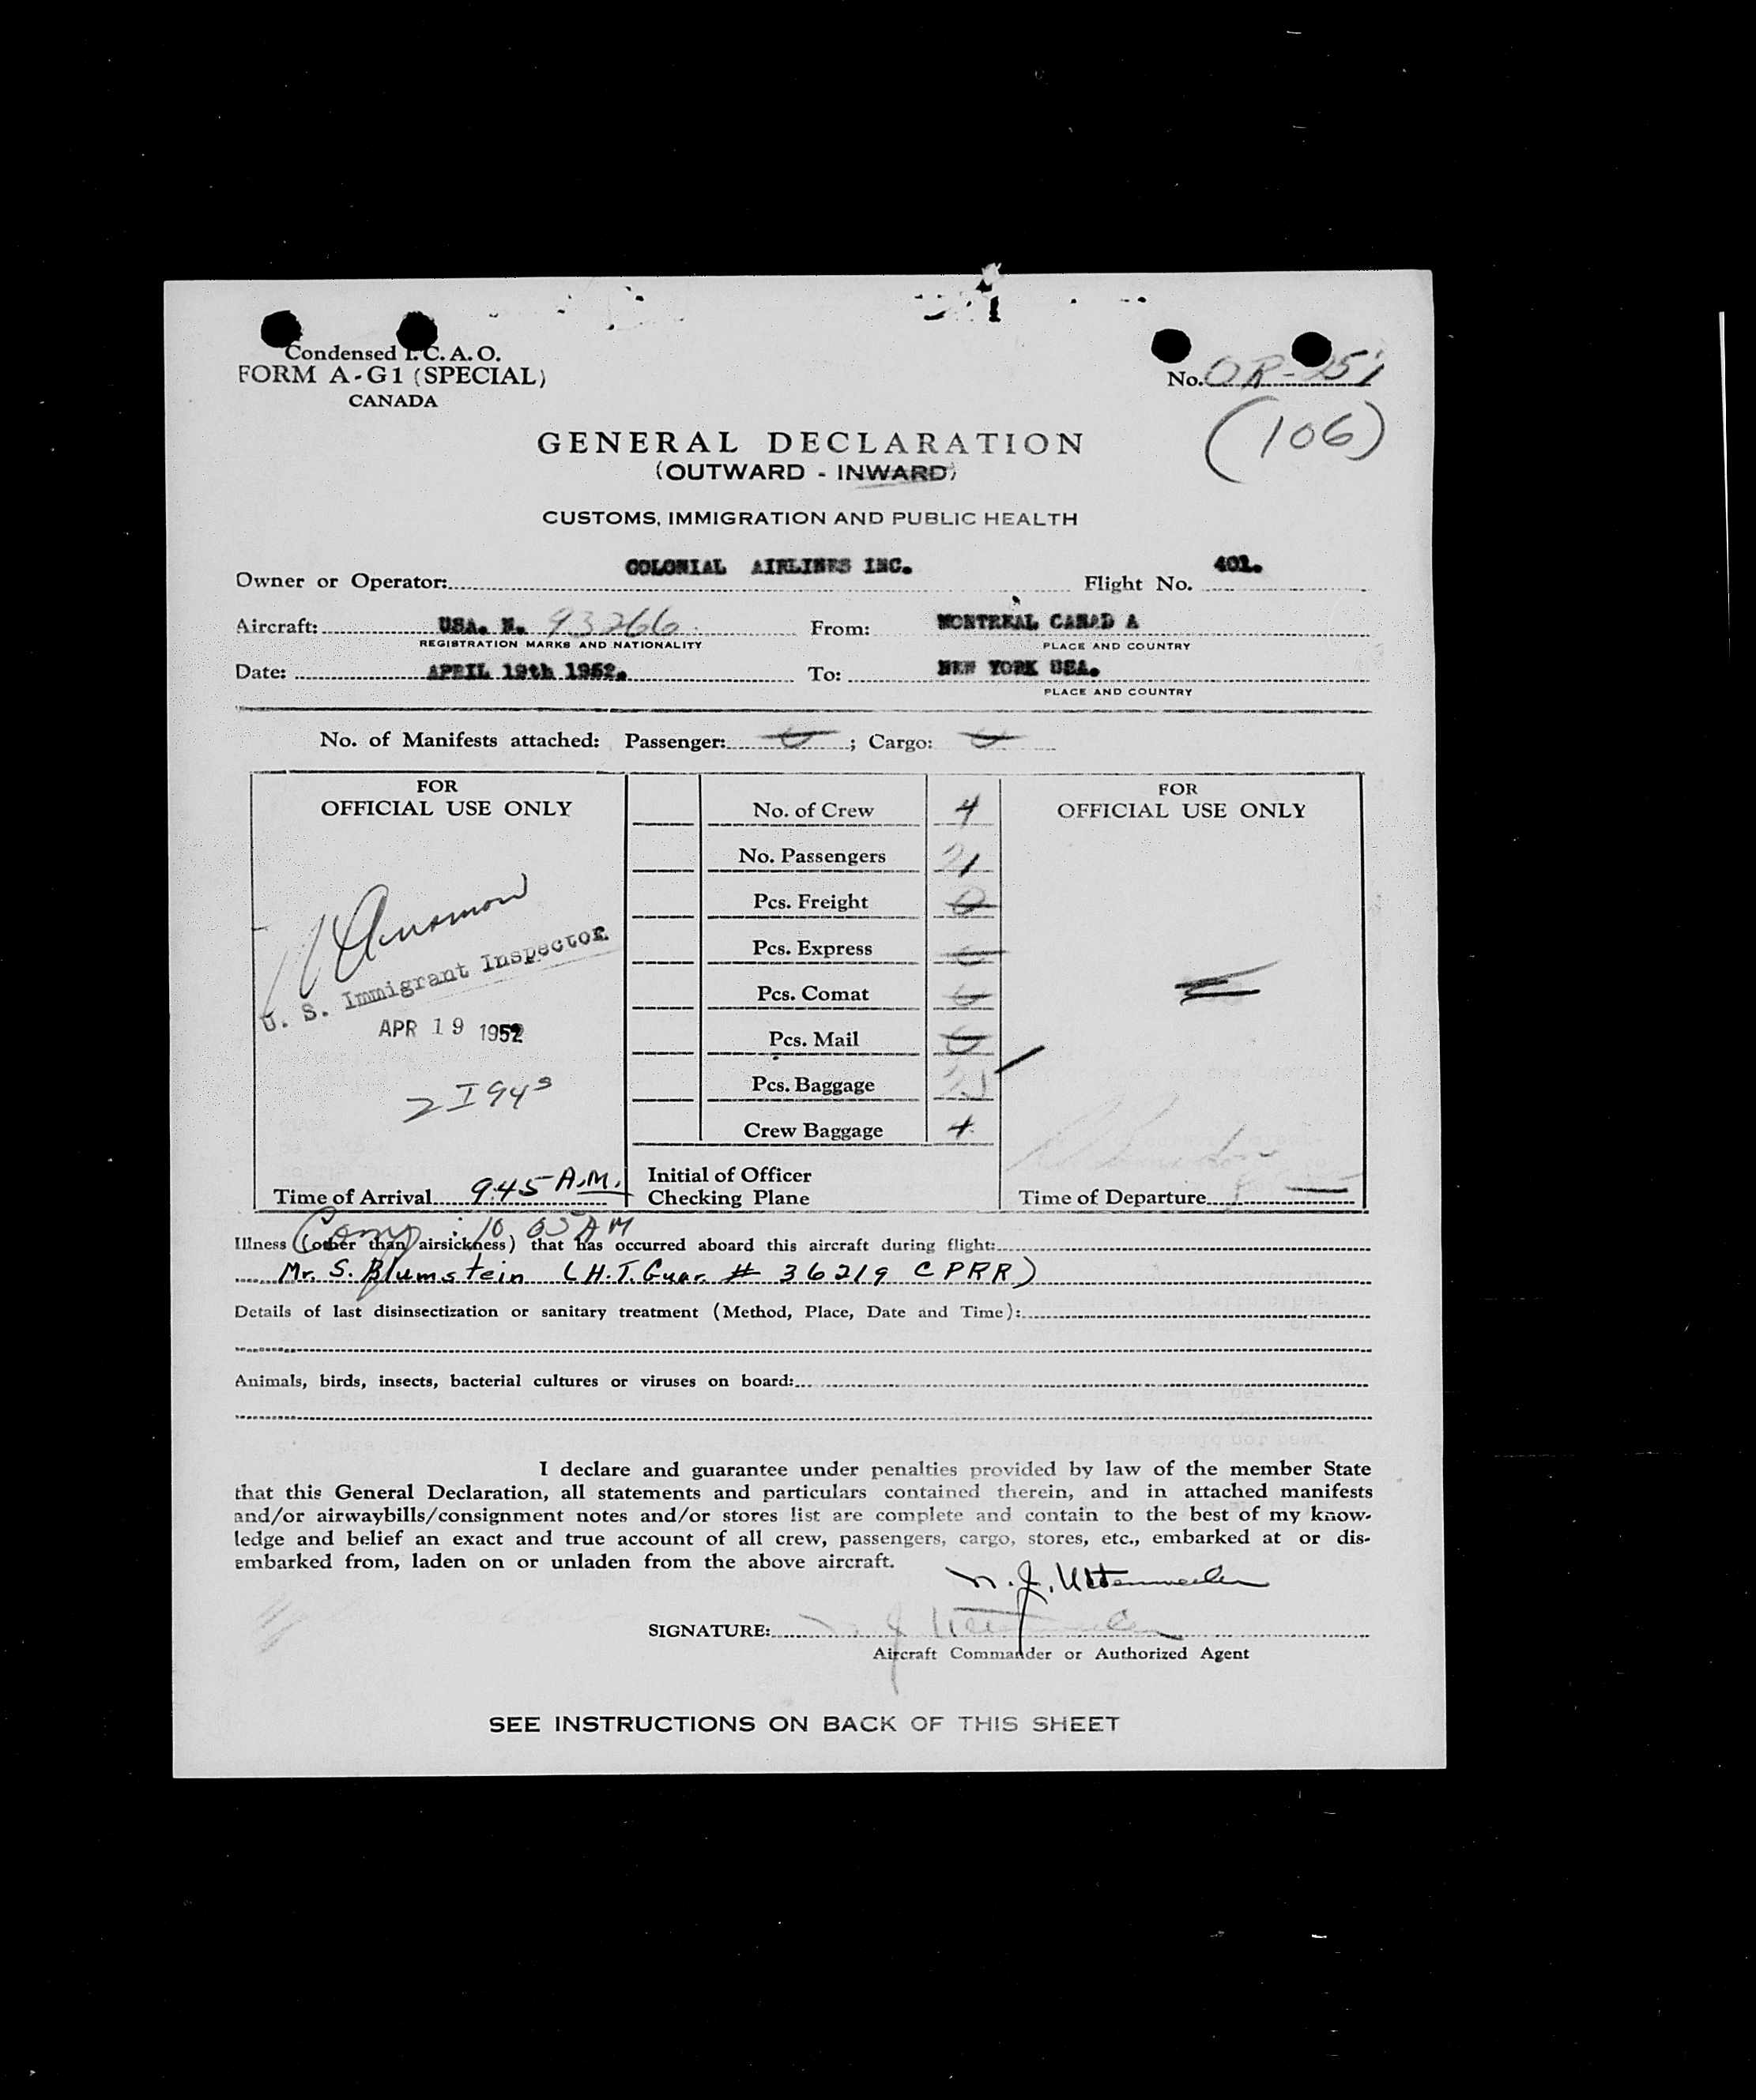 Condensed I.C.A.O.
FORM A-G1 (SPECIAL)
CANADA
No. OR-251
(106)
GENERAL DECLARATION
(OUTWARD - INWARD)
CUSTOMS, IMMIGRATION AND PUBLIC HEALTH
Owner or Operator: COLONIAL AIRLINES INC. Flight No. 401.
Aircraft: USA. N. 93266 From: MONTREAL CANAD A
REGISTRATION MARKS AND NATIONALITY PLACE AND COUNTRY
Date: APRIL 19th 1952. To: NEW YORK USA.
PLACE AND COUNTRY
No. of Manifests attached: Passenger: 0; Cargo: 0
FOR
OFFICIAL USE ONLY
U. S. Immigrant Inspector
APR 19 1952
2 I94s
Time of Arrival 9:45 A.M.
No. of Crew 4
No. Passengers 21
Pcs. Freight 0
Pcs. Express 0
Pcs. Comat 0
Pcs. Mail 0
Pcs. Baggage
Crew Baggage 4
Initial of Officer
Checking Plane
FOR
OFFICIAL USE ONLY
Time of Departure
Comp: 10 05 AM
Illness (other than airsickness) that has occurred aboard this aircraft during flight:
Mr. S. Blumstein (H.T. Guar. # 36219 CPRR)
Details of last disinsectization or sanitary treatment (Method, Place, Date and Time):
Animals, birds, insects, bacterial cultures or viruses on board:
I declare and guarantee under penalties provided by law of the member State
that this General Declaration, all statements and particulars contained therein, and in attached manifests
and/or airwaybills/consignment notes and/or stores list are complete and contain to the best of my know-
ledge and belief an exact and true account of all crew, passengers, cargo, stores, etc., embarked at or dis-
embarked from, laden on or unladen from the above aircraft.
SIGNATURE:
Aircraft Commander or Authorized Agent
SEE INSTRUCTIONS ON BACK OF THIS SHEET